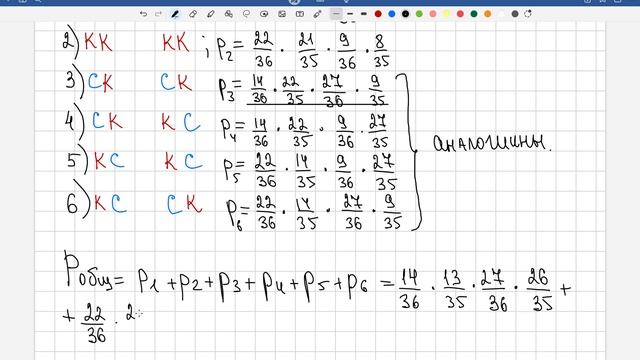 2) КК КК ; p₂ = 22/36 · 21/35 · 9/36 · 8/35
3) СК СК p₃ = 14/36 · 22/35 · 27/36 · 9/35
4) СК КС p₄ = 14/36 · 22/35 · 9/36 · 27/35
аналогичны.
5) КС КС p₅ = 22/36 · 14/35 · 9/36 · 27/35
6) КС СК p₆ = 22/36 · 14/35 · 27/36 · 9/35
Pобщ = p₁ + p₂ + p₃ + p₄ + p₅ + p₆ = 14/36 · 13/35 · 27/36 · 26/35 +
+ 22/36 · 2